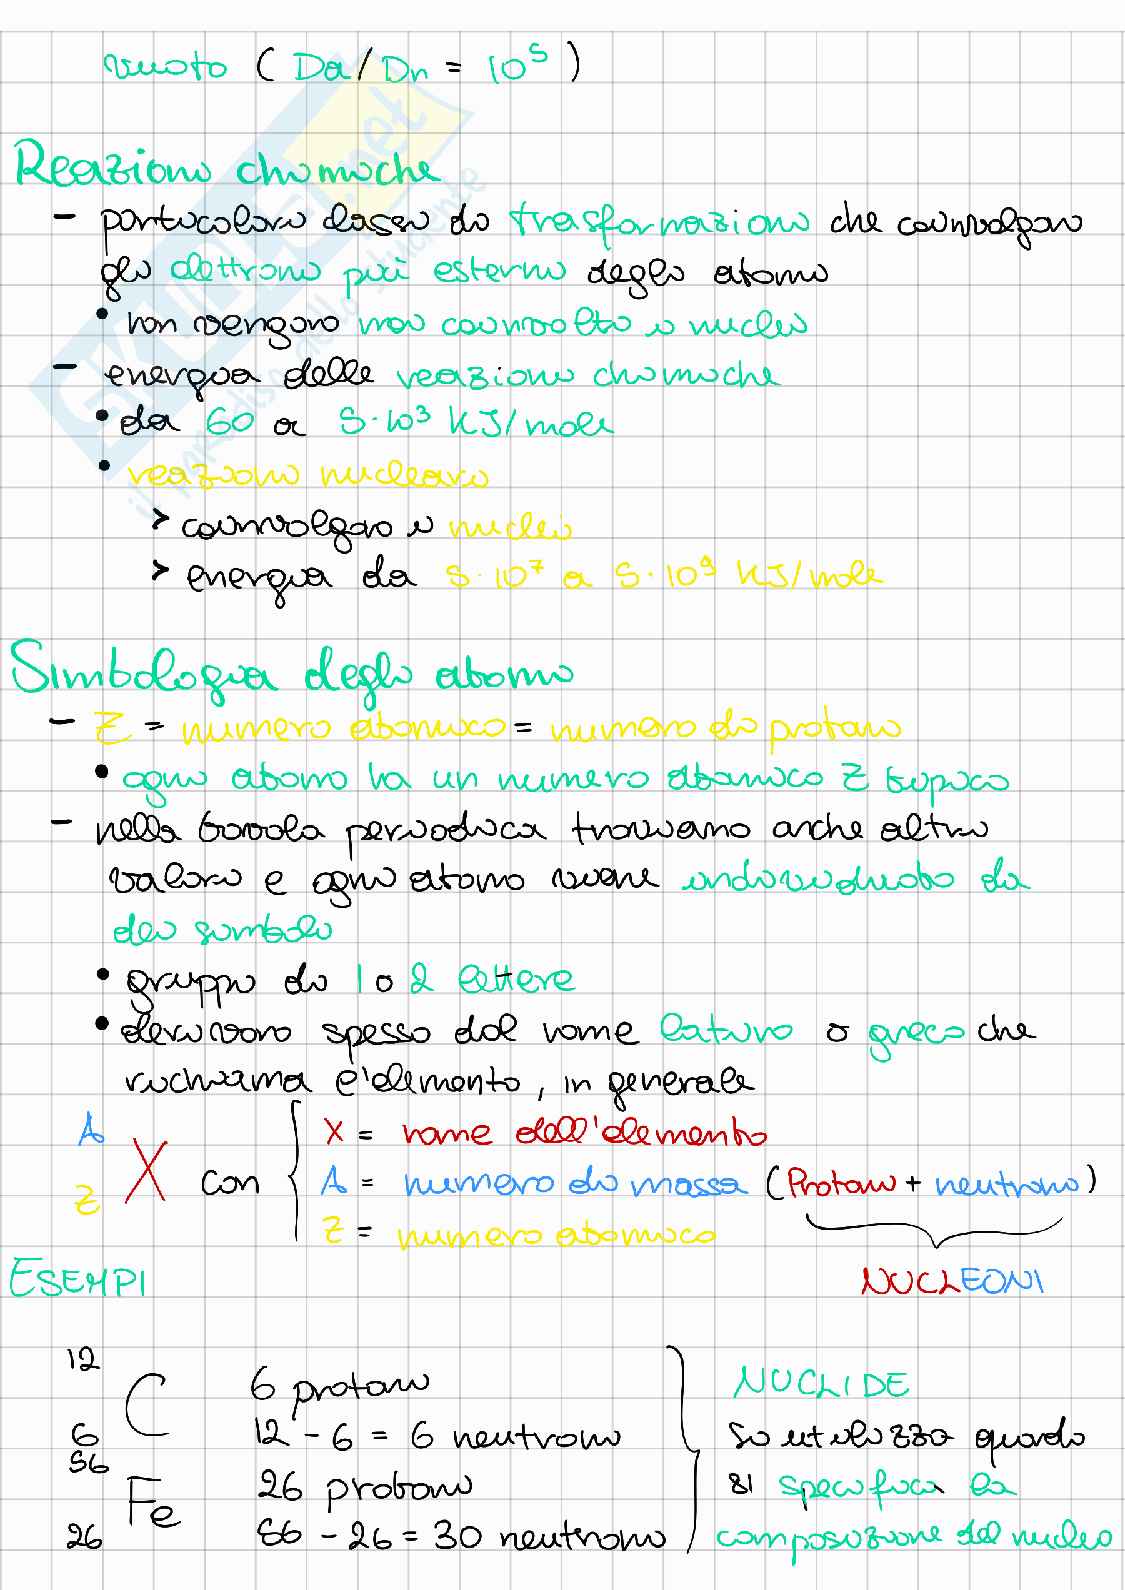 vuoto ( Da/Dn = 10⁵ )
Reazioni chimiche
- particolari classi di trasformazioni che coinvolgono
gli elettroni più esterni degli atomi
• non vengono mai coinvolti i nuclei
- energia delle reazioni chimiche
• da 60 a 5·10³ KJ/mole
• reazioni nucleari
> coinvolgono i nuclei
> energia da 5·10⁷ a 5·10⁹ KJ/mole
Simbologia degli atomi
- Z = numero atomico = numero di protoni
• ogni atomo ha un numero atomico Z tipico
- nella tavola periodica troviamo anche altri
valori e ogni atomo viene individuato da
dei simboli
• gruppi di 1 o 2 lettere
• derivano spesso dal nome latino o greco che
richiama l'elemento, in generale
A
Z X con { X = nome dell'elemento
A = numero di massa (Protoni + neutroni)
Z = numero atomico
NUCLEONI
ESEMPI
12
6 C 6 protoni
12 - 6 = 6 neutroni
56
26 Fe 26 protoni
56 - 26 = 30 neutroni
NUCLIDE
si utilizza quando
si specifica la
composizione del nucleo